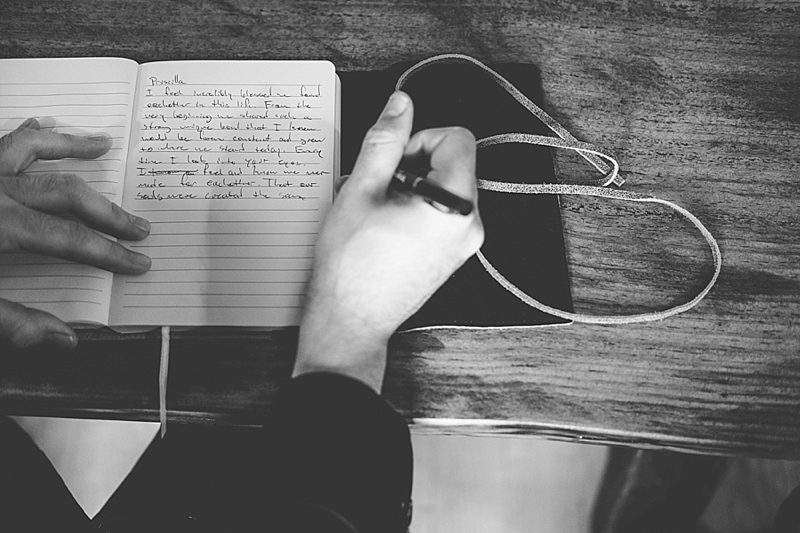 Priscilla
I feel incredibly blessed we found
eachother in this life. From the
very beginning we shared such a
strong unique bond that I knew
would be forever constant and grow
to where we stand today. Every
time I look into your eyes,
I feel and know we were
made for eachother. That our
souls were created the same